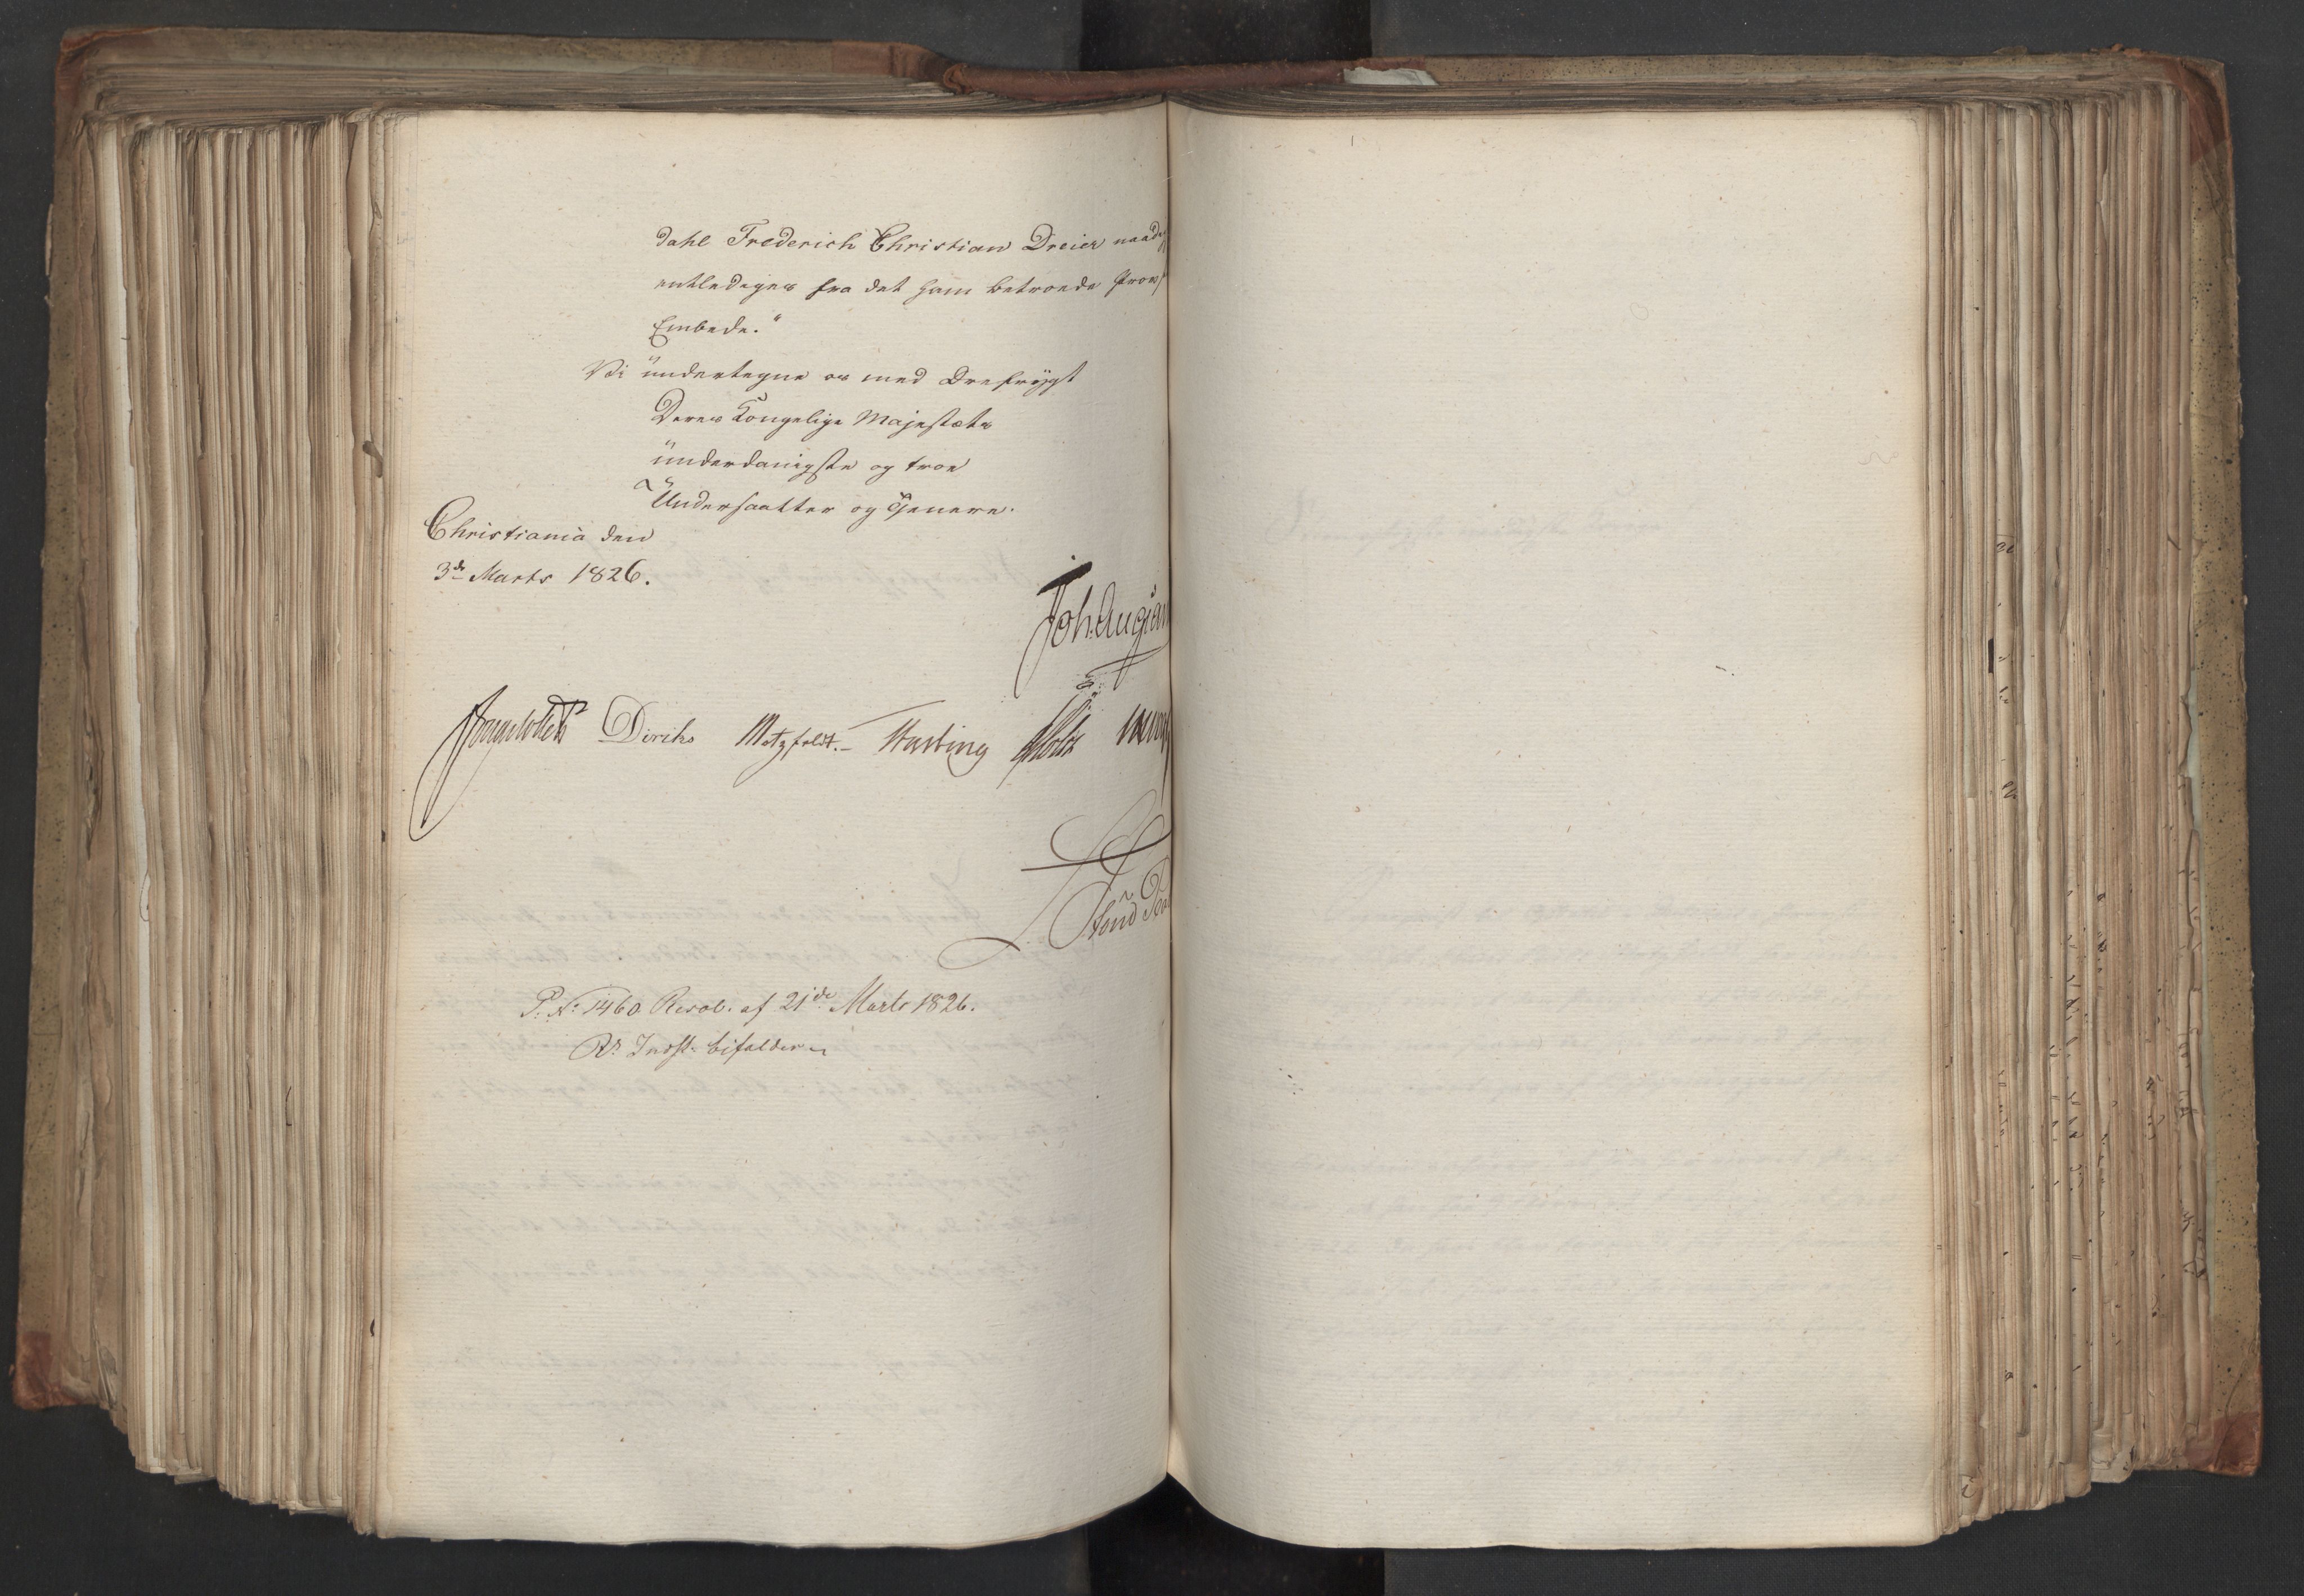 dahl Frederich Christian Dreier naad
entlediges fra det ham betroede
Embede."
Vi undertegne os med Ærefrygt
Deres Kongelige Majestæts
underdanigste og troe
Undersaatter og Tjenere.
Christiania den
3de Marts 1826.
Joh. Aug: San
Diriks Motzfeldt. Fasting Holst
P. No 1460. Resol. af 21de Marts 1826.
Rs Indst. bifaldes